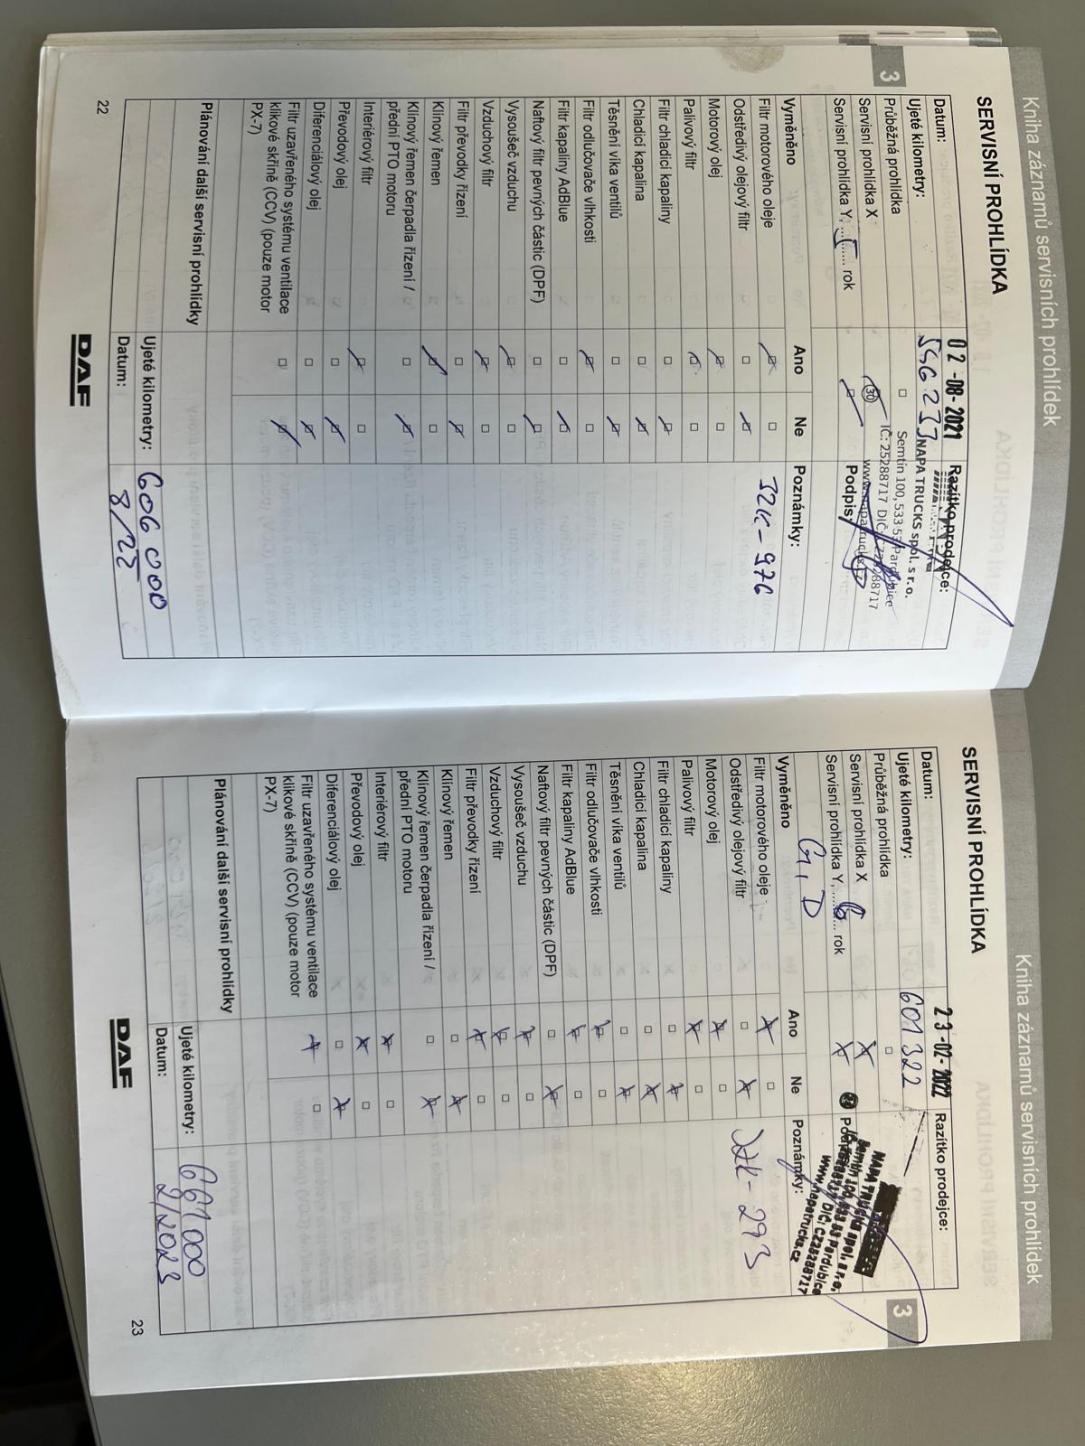 Kniha záznamů servisních prohlídek
SERVISNÍ PROHLÍDKA
3
Datum: 02-08-2021 Razítko prodejce:
Ujeté kilometry: 546 233 NAPA TRUCKS spol. s r.o.
Průběžná prohlídka Semtín 100, 533 53 Pardubice
Servisní prohlídka X 30 IČ: 25288717 DIČ:
Servisní prohlídka Y, 5 rok Podpis
Vyměněno Ano Ne Poznámky:
Filtr motorového oleje J2K-976
Odstředivý olejový filtr
Motorový olej
Palivový filtr
Filtr chladicí kapaliny
Chladicí kapalina
Těsnění víka ventilů
Filtr odlučovače vlhkosti
Filtr kapaliny AdBlue
Naftový filtr pevných částic (DPF)
Vysoušeč vzduchu
Vzduchový filtr
Filtr převodky řízení
Klínový řemen
Klínový řemen čerpadla řízení /
přední PTO motoru
Interiérový filtr
Převodový olej
Diferenciálový olej
Filtr uzavřeného systému ventilace
klikové skříně (CCV) (pouze motor
PX-7)
Plánování další servisní prohlídky
Ujeté kilometry: 606 000
Datum: 8/22
22
DAF
Kniha záznamů servisních prohlídek
SERVISNÍ PROHLÍDKA
3
Datum: 23-02-2022 Razítko prodejce:
Ujeté kilometry: 601 322
Průběžná prohlídka NAPA TRUCKS spol. s r.o.
Servisní prohlídka X Semtín 100, 533 53 Pardubice
Servisní prohlídka Y, 6 rok DIČ: CZ25288717
G, D www.napatrucks.cz
Vyměněno Ano Ne Poznámky:
Filtr motorového oleje
Odstředivý olejový filtr
Motorový olej
Palivový filtr
Filtr chladicí kapaliny
Chladicí kapalina
Těsnění víka ventilů
Filtr odlučovače vlhkosti
Filtr kapaliny AdBlue
Naftový filtr pevných částic (DPF)
Vysoušeč vzduchu
Vzduchový filtr
Filtr převodky řízení
Klínový řemen
Klínový řemen čerpadla řízení /
přední PTO motoru
Interiérový filtr
Převodový olej
Diferenciálový olej
Filtr uzavřeného systému ventilace
klikové skříně (CCV) (pouze motor
PX-7)
Plánování další servisní prohlídky
Ujeté kilometry: 661 000
Datum: 2/2023
DAF
23